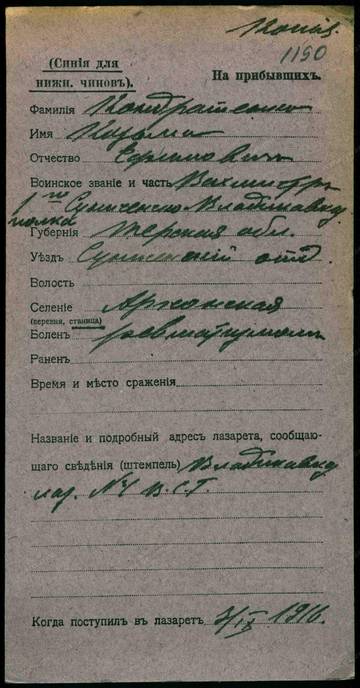 Копія.
1190
(Синія для
нижн. чиновъ).
На прибывшихъ.
Фамилія Кондратенко
Имя Кузьма
Отчество Ефимовичъ
Воинское званіе и часть Вахмистръ
1го Сунженско Владикавказ.
полка
Губернія Терская обл.
Уѣздъ Сунженскій отд.
Волость
Селеніе
(деревня, станица)
Боленъ ревматизмомъ
Раненъ
Время и мѣсто сраженія
Названіе и подробный адресъ лазарета, сообщаю-
щаго свѣдѣнія (штемпель) Владикавказ
лаз. №1 В.С.Г.
Когда поступилъ въ лазаретъ 1916.